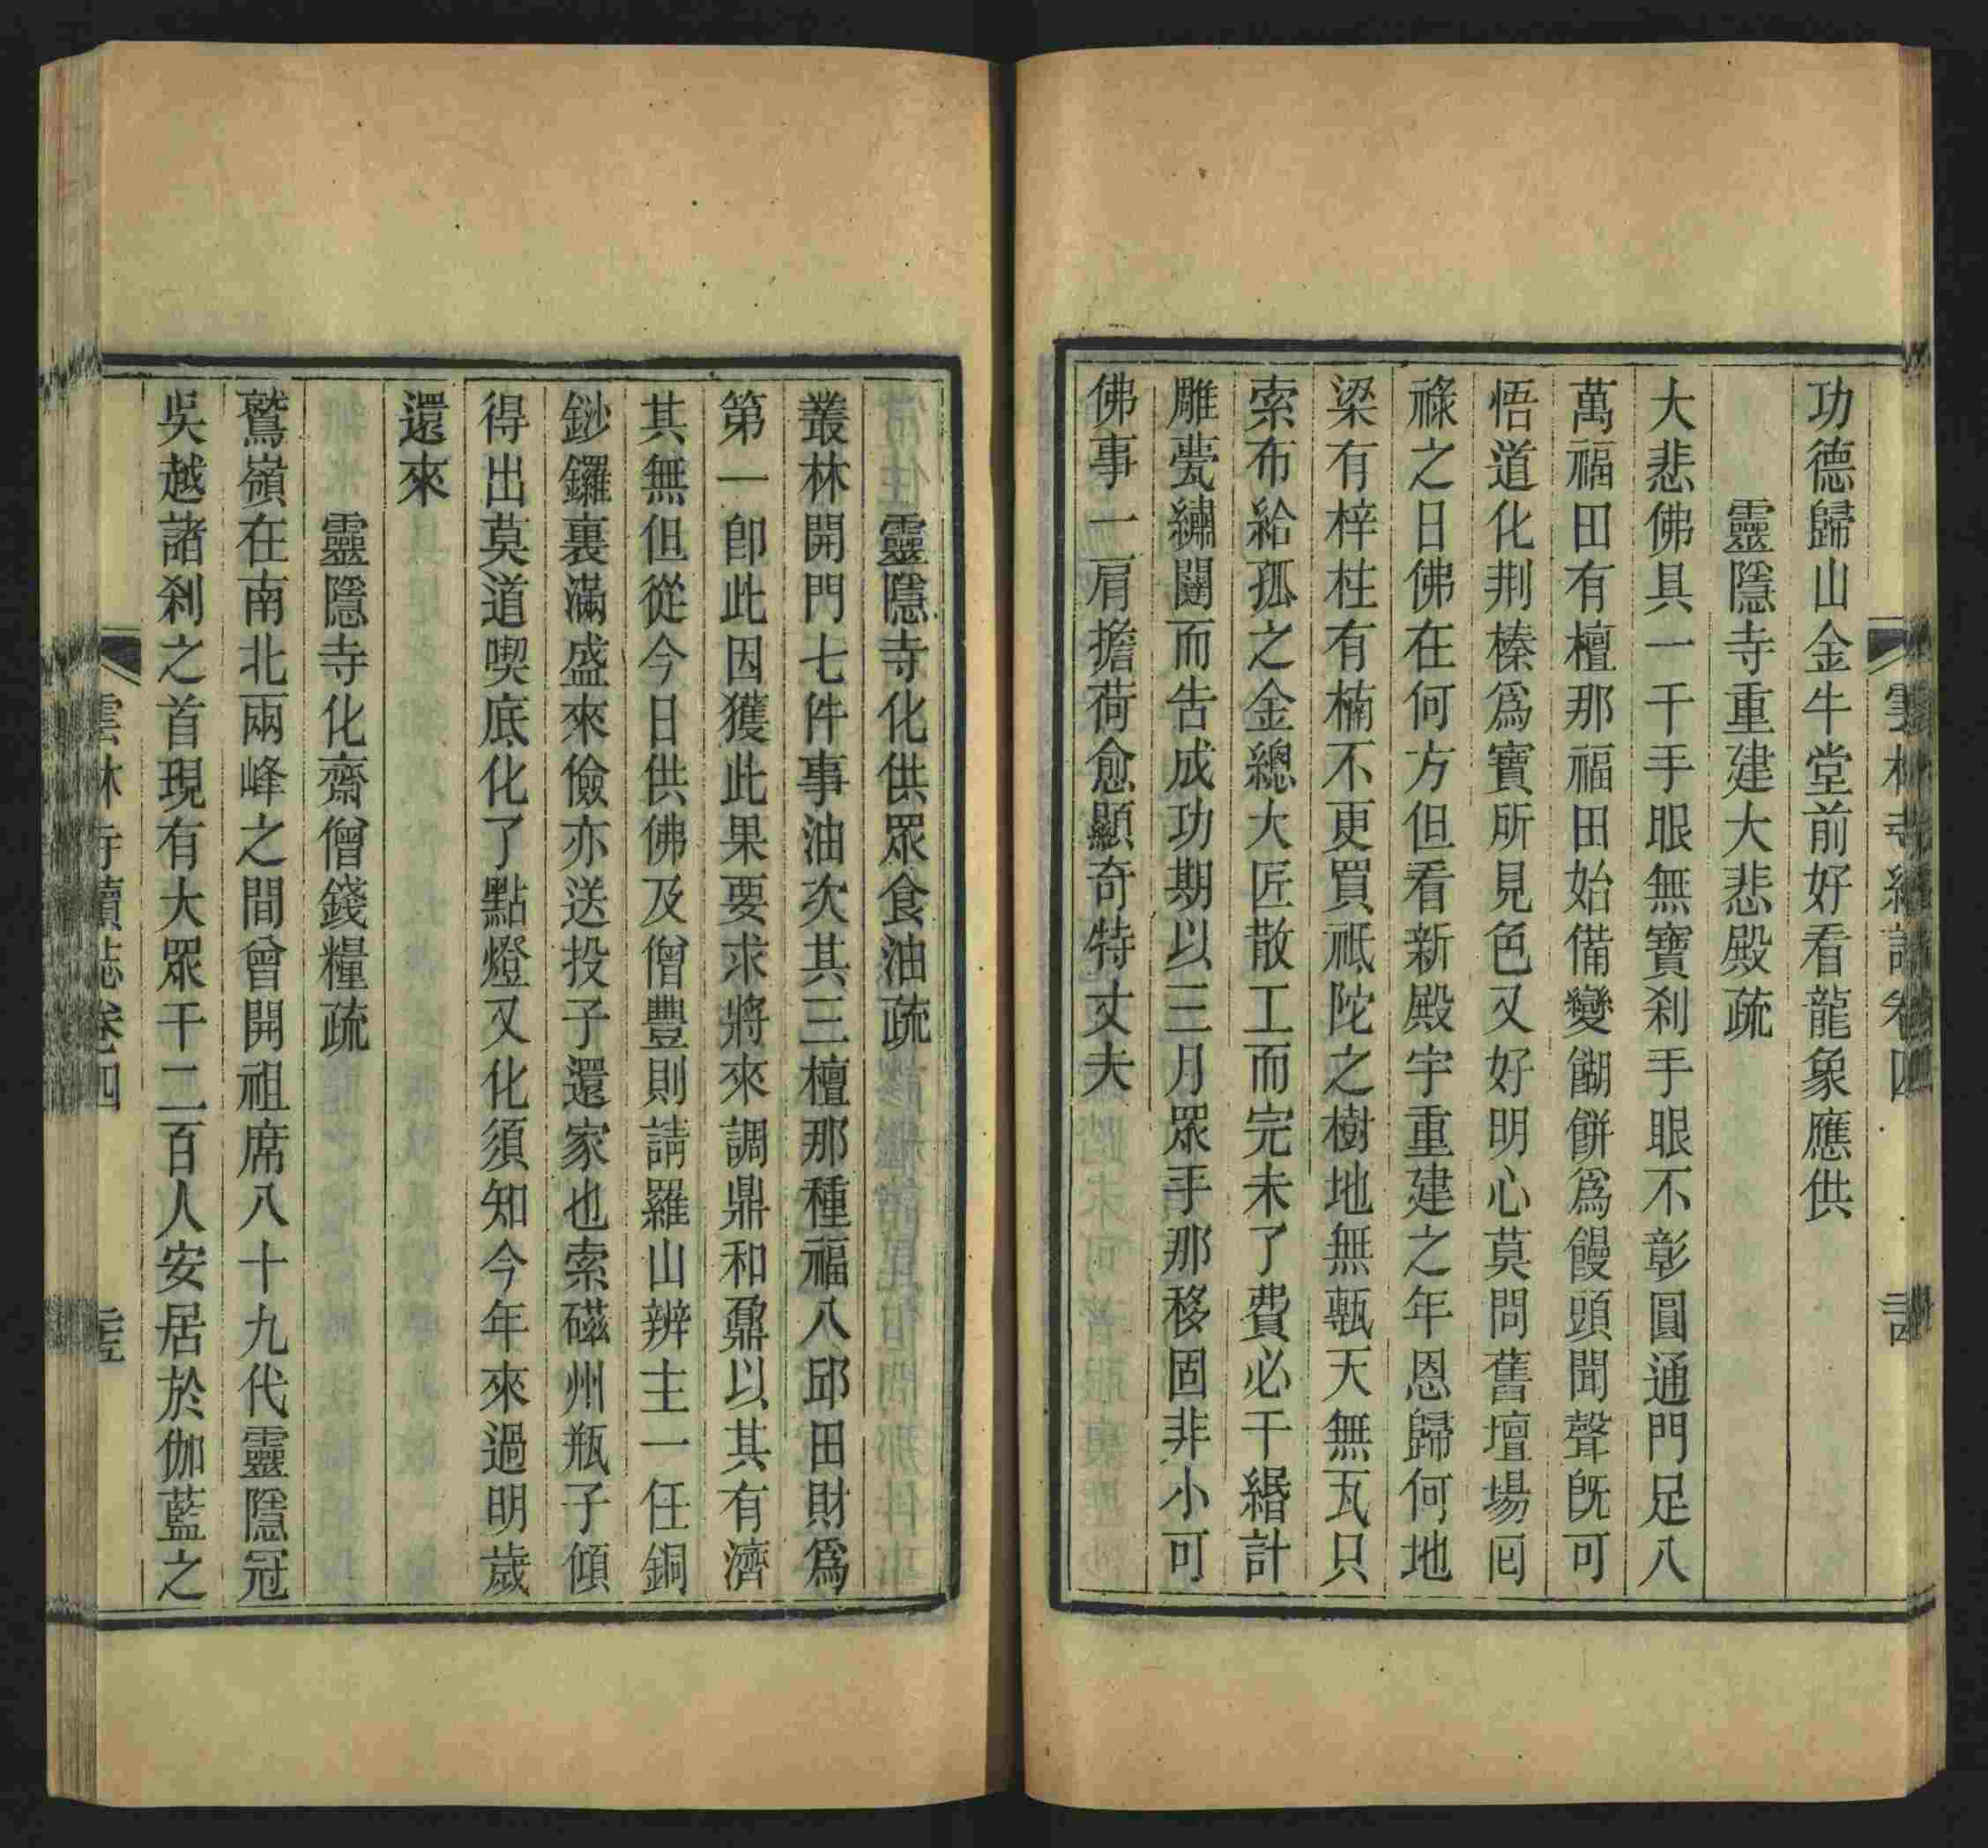 功德歸山金牛堂前好看龍象應供
靈隱寺重建大悲殿疏
大悲佛具一千手眼無寶刹手眼不彰圓通門足八
萬福田有檀那福田始備變餬餅爲饅頭聞聲旣可
悟道化荆榛爲寶所見色又好明心莫問舊壇場囘
祿之日佛在何方但看新殿宇重建之年恩歸何地
梁有梓柱有楠不更買祗陀之樹地無甎天無瓦只
索布給孤之金總大匠散工而完未了費必千緡計
雕甍繡闥而吿成功期以三月眾手那移固非小可
佛事一肩擔荷愈顯奇特丈夫
靈隱寺化供眾食油疏
叢林開門七件事油次其三檀那種福八邱田財爲
第一卽此因獲此果要求將來調鼎和鼐以其有濟
其無但從今日供佛及僧豐則請羅山辨主一任銅
鈔鑼裏滿盛來儉亦送投子還家也索磁州瓶子傾
得出莫道喫底化了點燈又化須知今年來過明歲
還來
靈隱寺化齋僧錢糧疏
鷲嶺在南北兩峰之間曾開祖席八十九代靈隱冠
吳越諸刹之首現有大眾千二百人安居於伽藍之
雲林寺續誌卷四